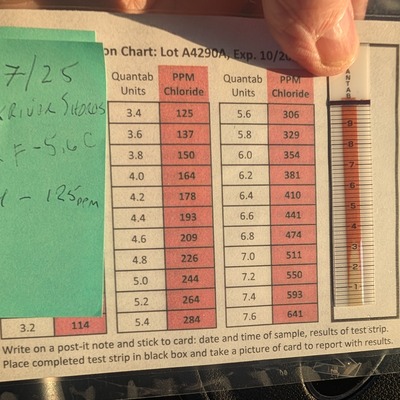 on Chart: Lot A4290A, Exp. 10/20
7/25
F -5.6 C
- 125 ppm
Quantab Units PPM Chloride Quantab Units PPM Chloride
3.4 125 5.6 306
3.6 137 5.8 329
3.8 150 6.0 354
4.0 164 6.2 381
4.2 178 6.4 410
4.4 193 6.6 441
4.6 209 6.8 474
4.8 226 7.0 511
5.0 244 7.2 550
5.2 264 7.4 593
3.2 114 5.4 284 7.6 641
ANTAB
9
8
7
6
5
4
3
2
1
Write on a post-it note and stick to card: date and time of sample, results of test strip.
Place completed test strip in black box and take a picture of card to report with results.